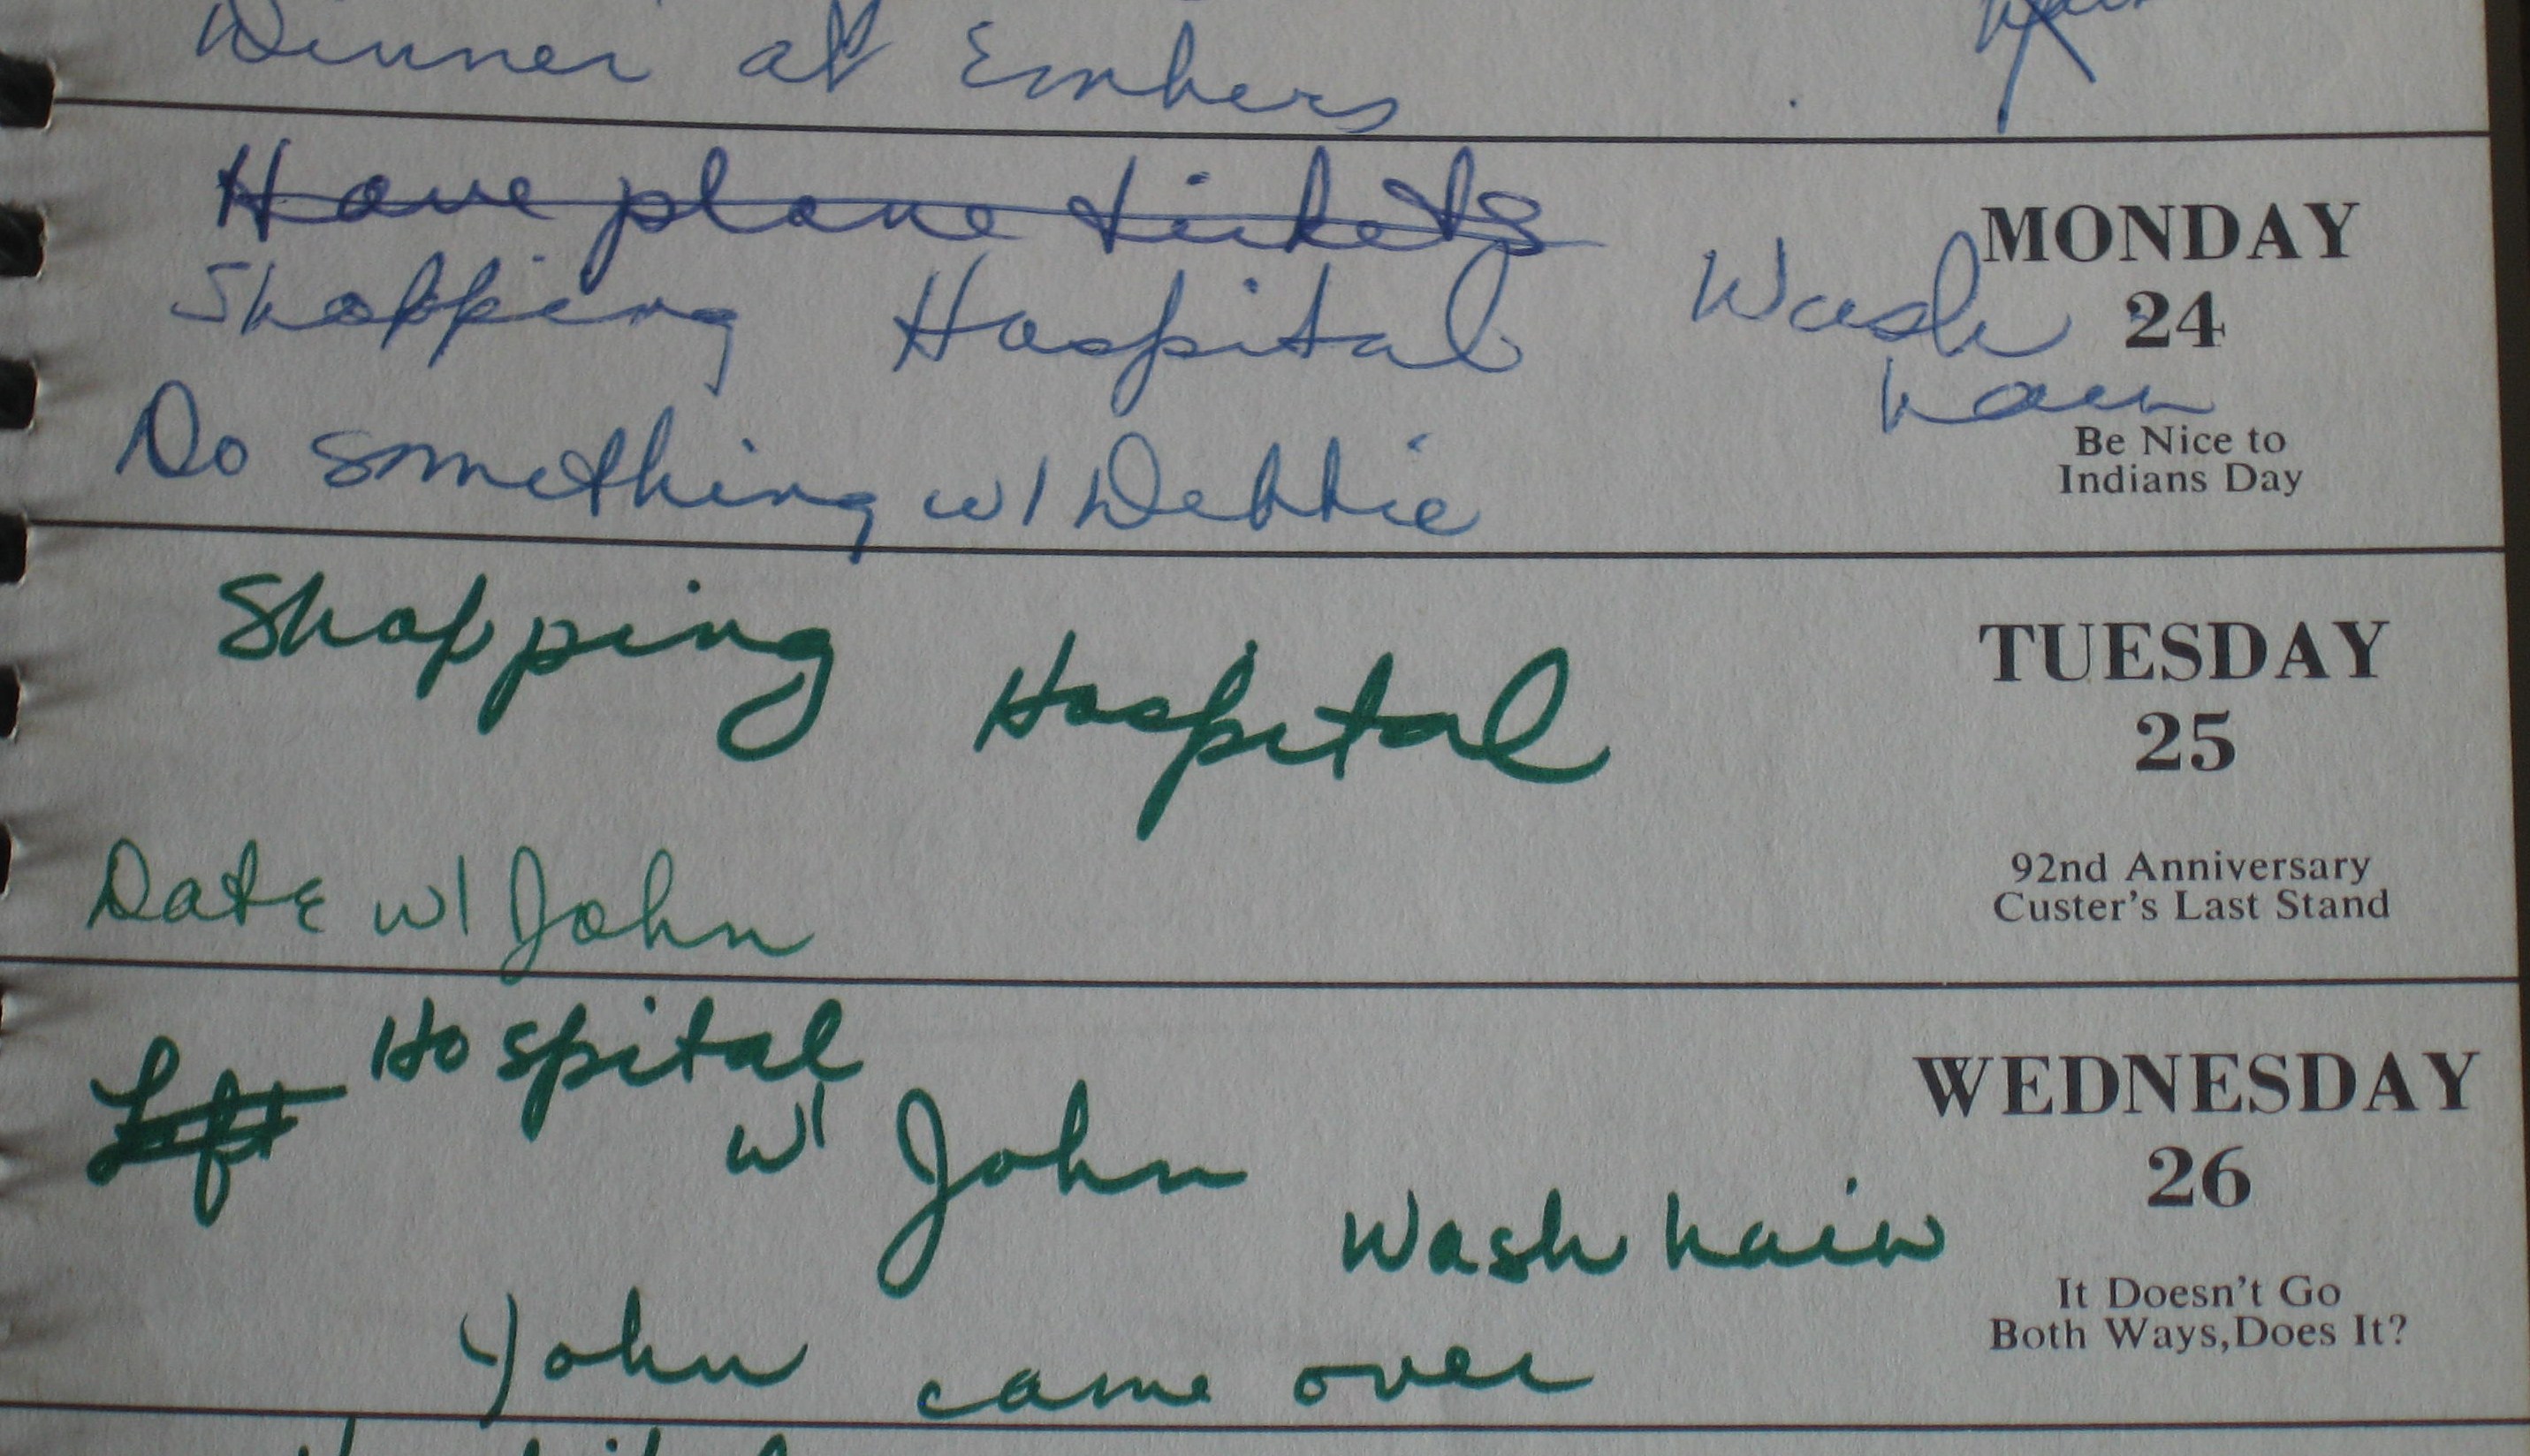 Dinner at Embers
Have plane tickets
MONDAY
24
Shopping Hospital Wash
hair
Do something w/ Debbie
Be Nice to
Indians Day
Shopping Hospital
TUESDAY
25
Date w/ John
92nd Anniversary
Custer's Last Stand
Left Hospital
w/ John
WEDNESDAY
26
Wash hair
John came over
It Doesn't Go
Both Ways,Does It?